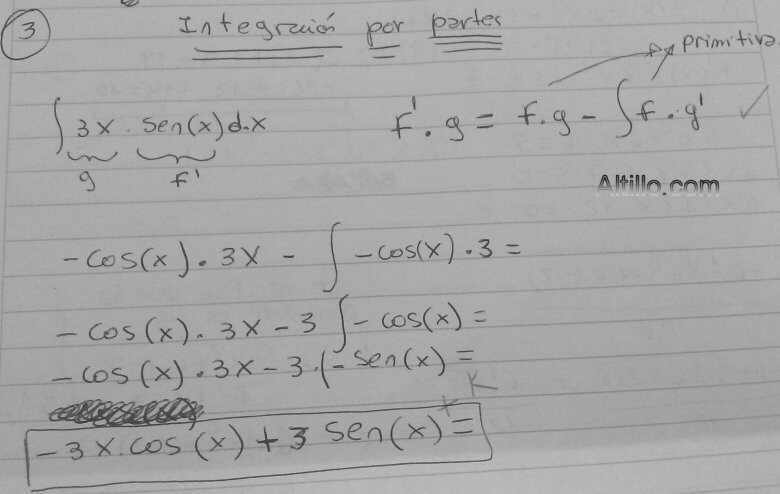 3 Integración por partes
primitiva
∫ 3x . sen(x) d.x f' . g = f.g - ∫ f . g' ✓
g f'
Altillo.com
-cos(x) . 3x - ∫ -cos(x) . 3 =
-cos(x) . 3x - 3 ∫ - cos(x) =
-cos(x) . 3x - 3 . (- sen(x) =
-3x.cos(x) + 3 sen(x) + K =